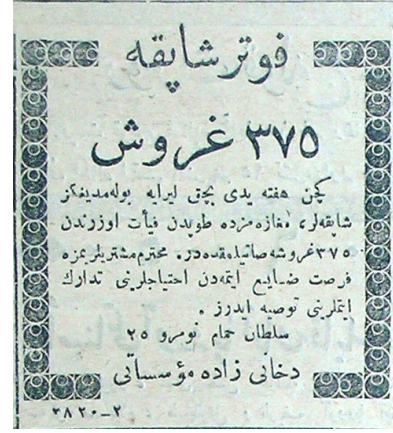 فوتر شاپقه
٣٧٥ غروش
كچن هفته يدى بچق ليرايه بوله مديغكز
شابقه‌لر، مغازه مزده طوپدن فيأت اوزرندن
٣٧٥ غروشه صاتيلمقده در. محترم مشتريلريمزه
فرصت ضايع ايتمه‌دن احتياجلرينى تدارك
ايتملرينى توصيه ايدرز .
سلطان حمام نومرو ٢٥
دخانى زاده مؤسساتى
٢-٣٨٢٠